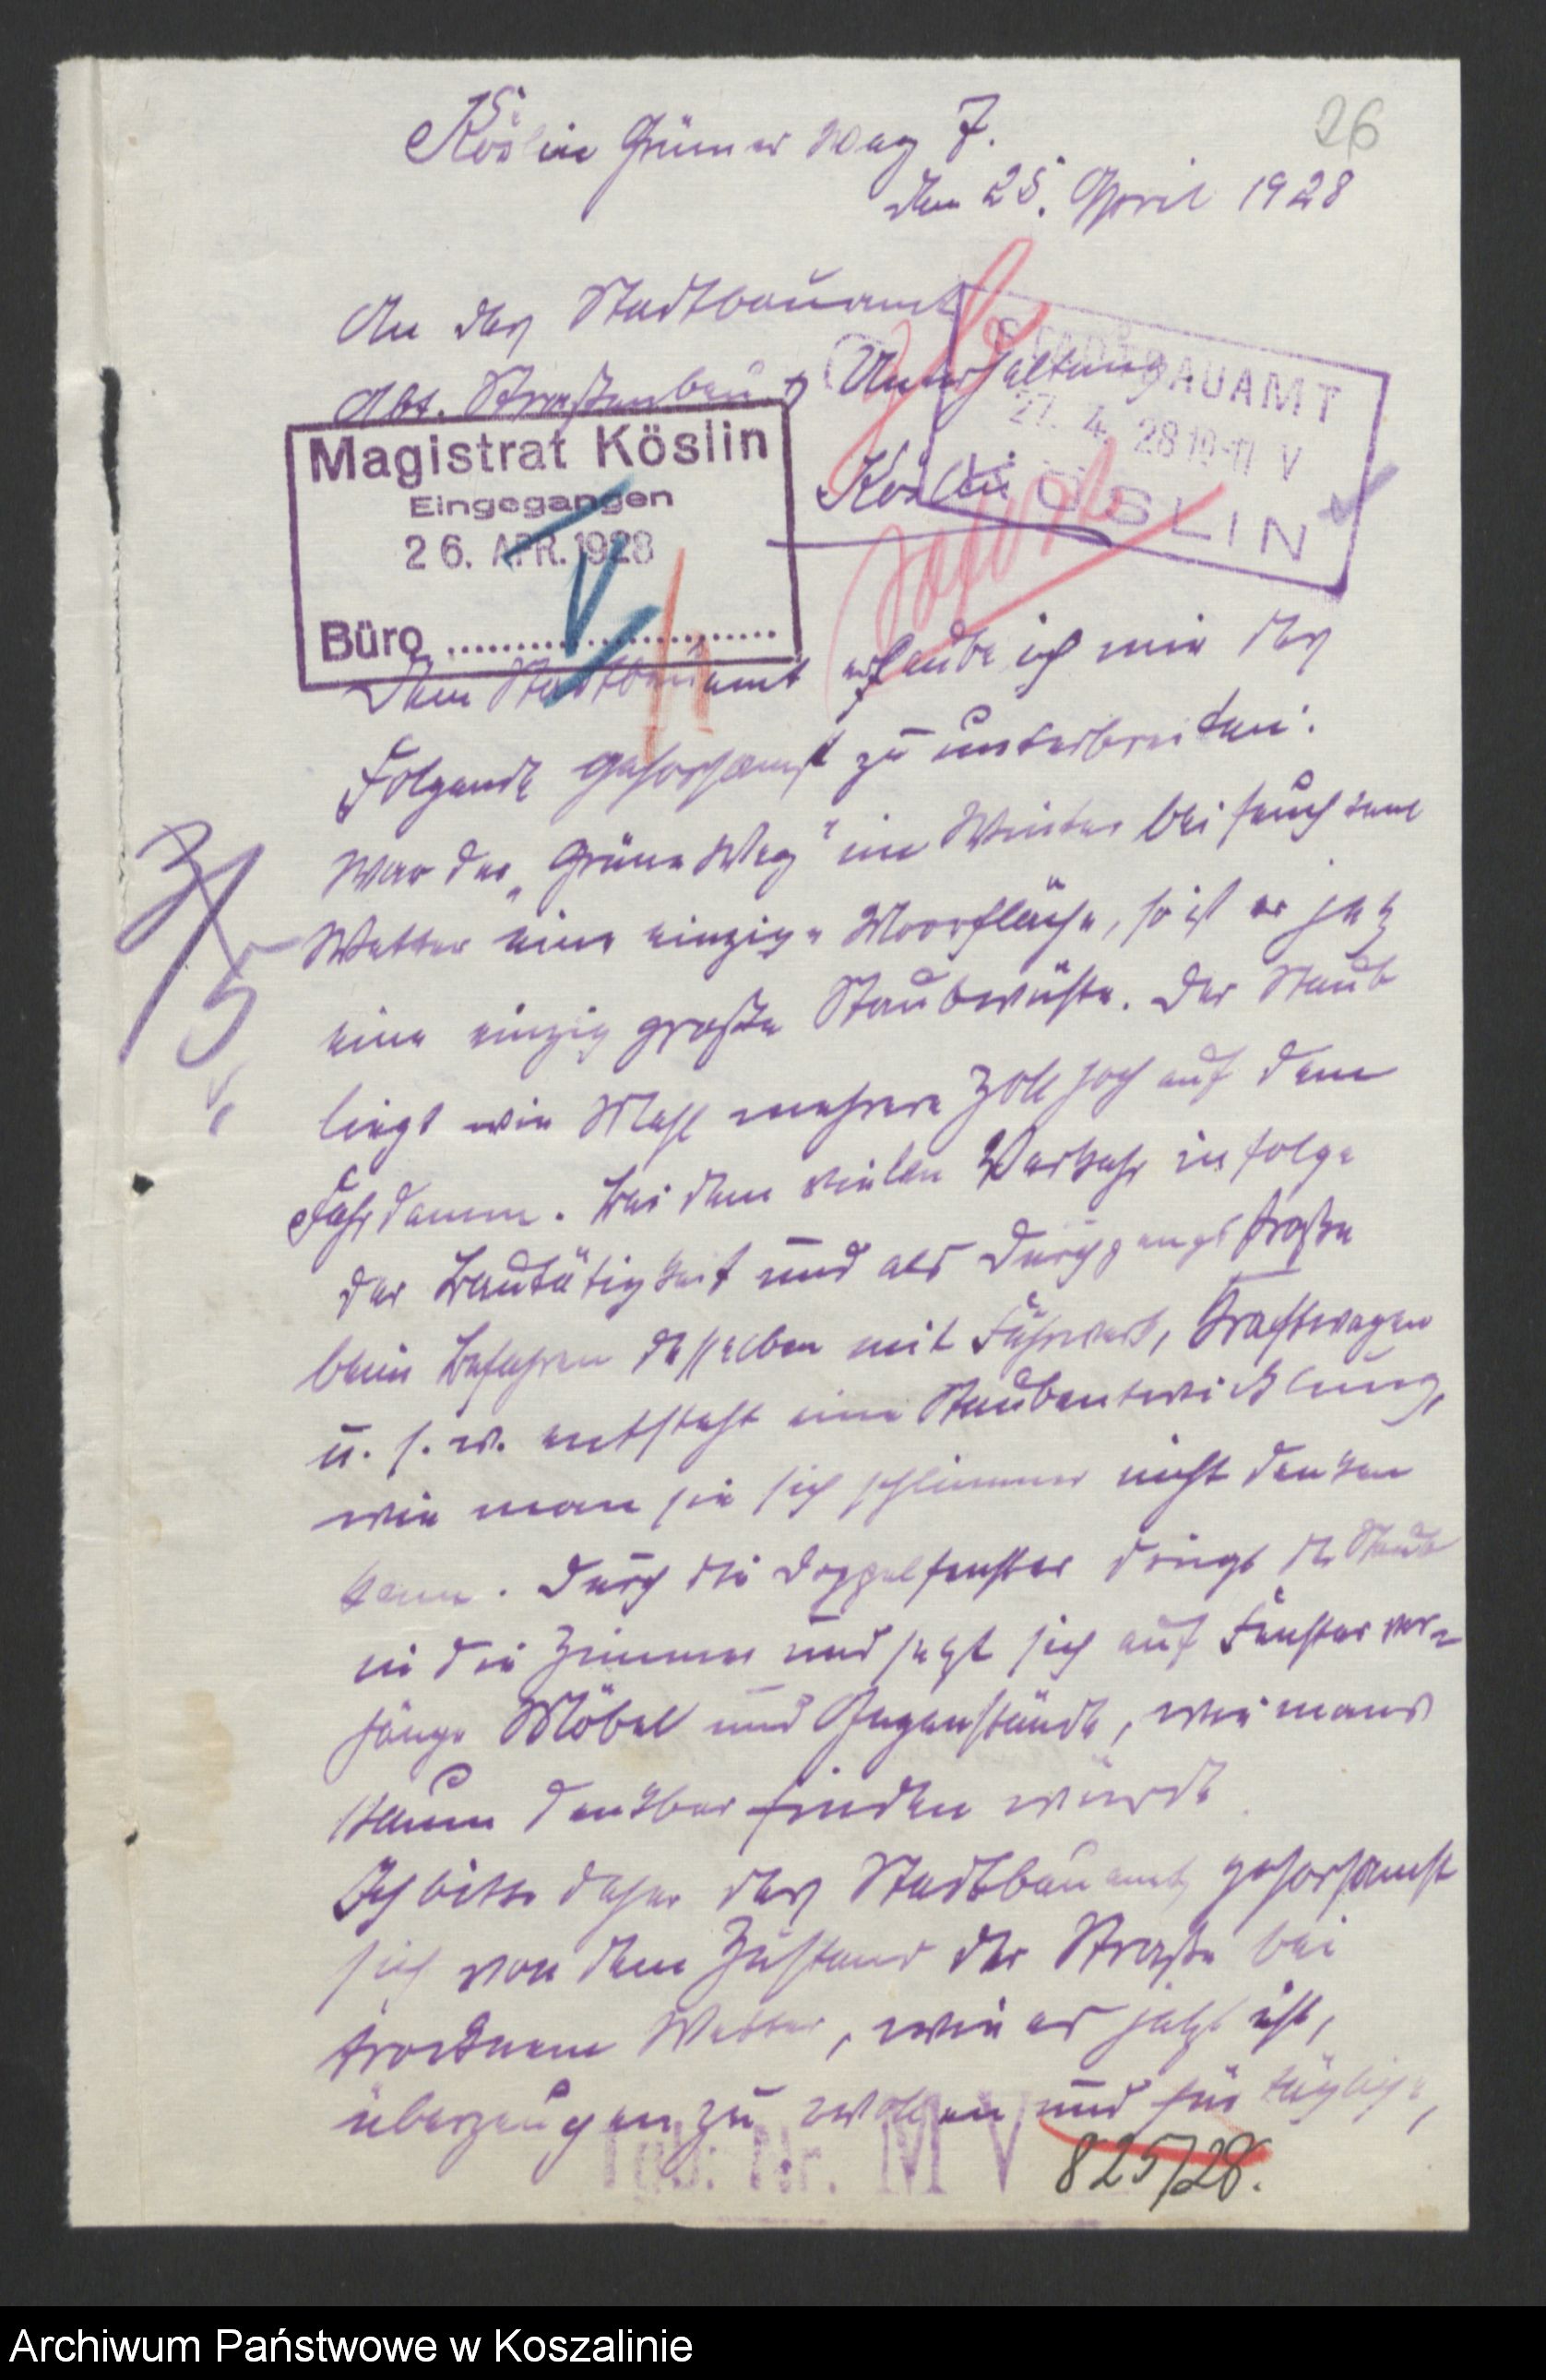 26
Köslin Grüner Weg 7.
den 25. April 1928
An das Stadtbauamt
Abt. Straßenbau u. Unterhaltung
Köslin
STADTBAUAMT
27. 4. 28 10-11 V
KÖSLIN
Magistrat Köslin
Eingegangen
26. APR. 1928
Büro
V
sofort
Dem Stadtbauamt erlaube ich mir das
Folgende gehorsamst zu unterbreiten:
War der „Grüne Weg" im Winter bei feuchtem
Wetter eine einzige Moorfläche, so ist er jetz
eine einzig große Staubwüste. Der Staub
liegt wie Mehl mehrere Zoll hoch auf dem
Fahrdamm. Bei dem vielen Verkehr infolge
der Bautätigkeit und als Durchgangsstraße
beim Befahren desselben mit Fuhrwerk, Kraftwagen
u. s. w. entsteht eine Staubentwicklung,
wie man sie sich schlimmer nicht denken
kann. Durch die Doppelfenster dringt der Staub
in die Zimmer und setzt sich auf Fenstervor-
hänge Möbel und Gegenstände, wie mans
kaum denkbar finden würde
Ich bitte daher das Stadtbauamt gehorsamst
sich von dem Zustand der Straße bei
trocknem Wetter, wie es jetzt ist,
überzeugen zu wollen und für tägliche,
3/5
Tgb. Nr. M V 825/28.
Archiwum Państwowe w Koszalinie